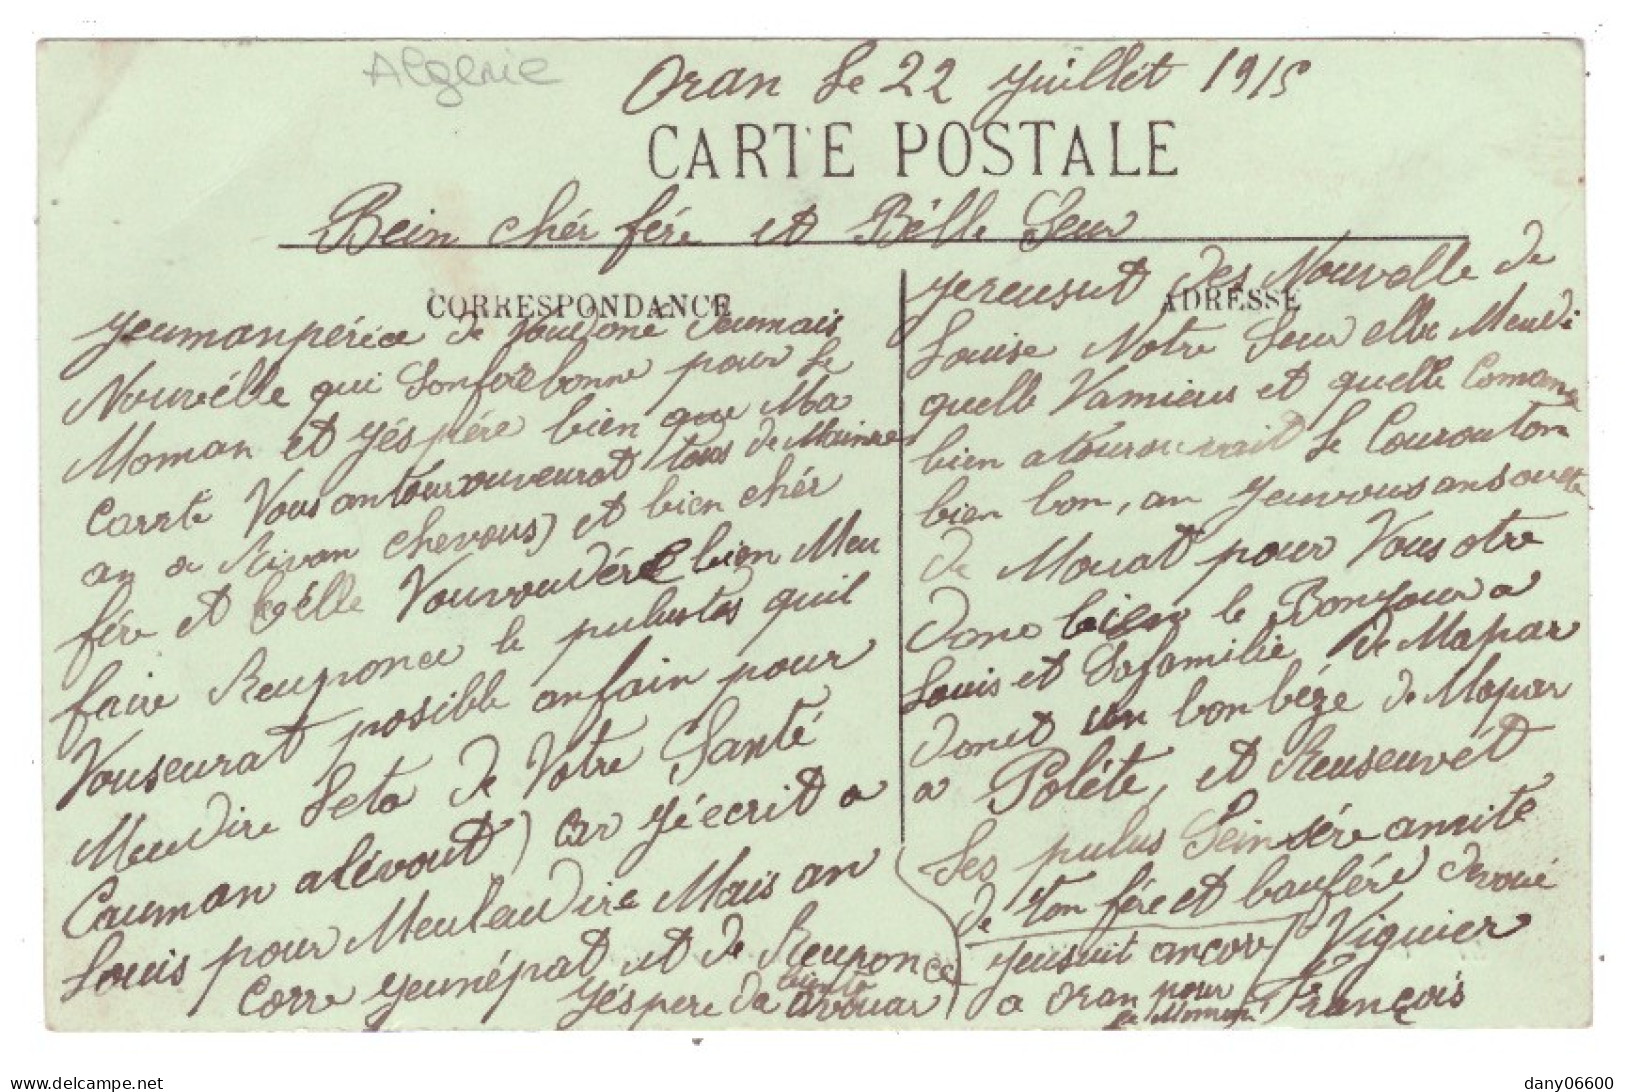 Algerie
Oran le 22 yuillét 1915
CARTE POSTALE
Bein chér fére et Bélle Seur
CORRESPONDANCE
yeumanpérice de voudoné deumais
Nouvélle qui Sonforébonne pour le
Moman et yéspére bien que Ma
Carrte Vousantourouveurat tous de Mainne
an a Rivan chevous) et bien chér
fére et bélle Vouvoudére bien Meu
faire Reuponce le pulustos quil
Vouseurat posible anfain pour
Meudire Leta de Votre Santé
Couman alévout) Car yéécrit a
Louis pour Meuleudire Mais an
Corre yeunépat et de Reuponce
yéspere da bientо avouar
ADRESSE
yereusut des Nouvelle de
Louise Notre Seur elle Meudi
quelle Vamieus et quelle Comance
bien atourouvait le Courouton
bien bon, an yeuvousansouete
de Mouat pour Vousotre
Donc bien le Bonyour a
Louis et Safamilie, de Mapar
donet un bonbéze de Mapar
a Poléte, et Reuseuvét
Les pulus Seinsére amite
de ton fére et bauféré dévoué
yeusuit ancore Viguier
a Oran pour François
ce Moman
dany06600